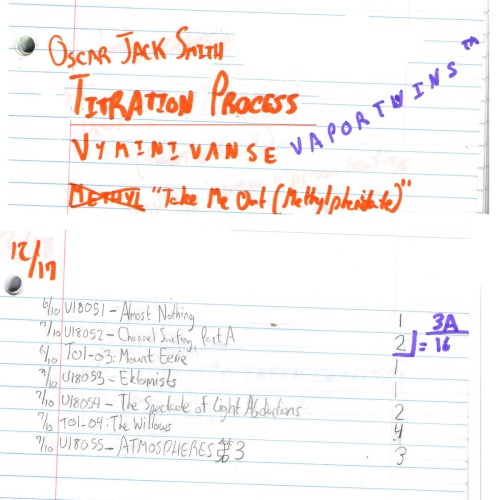 OSCAR JACK SMITH
TITRATION PROCESS
VYMINIVANSE VAPORTWINS™
METHYL "Take Me Out (Methylphenidate)"
12/17
6/10 U18051 - Almost Nothing 1
7/10 U18052 - Channel Surfing, Part A 2 3A = 16
6/10 T01-03: Mount Eerie 1
7/10 U18053 - Ektomists 1
7/10 U18054 - The Spectacle of Light Abductions 2
7/10 T01-04: The Willows 4
7/10 U18055 - ATMOSPHERES 3 3